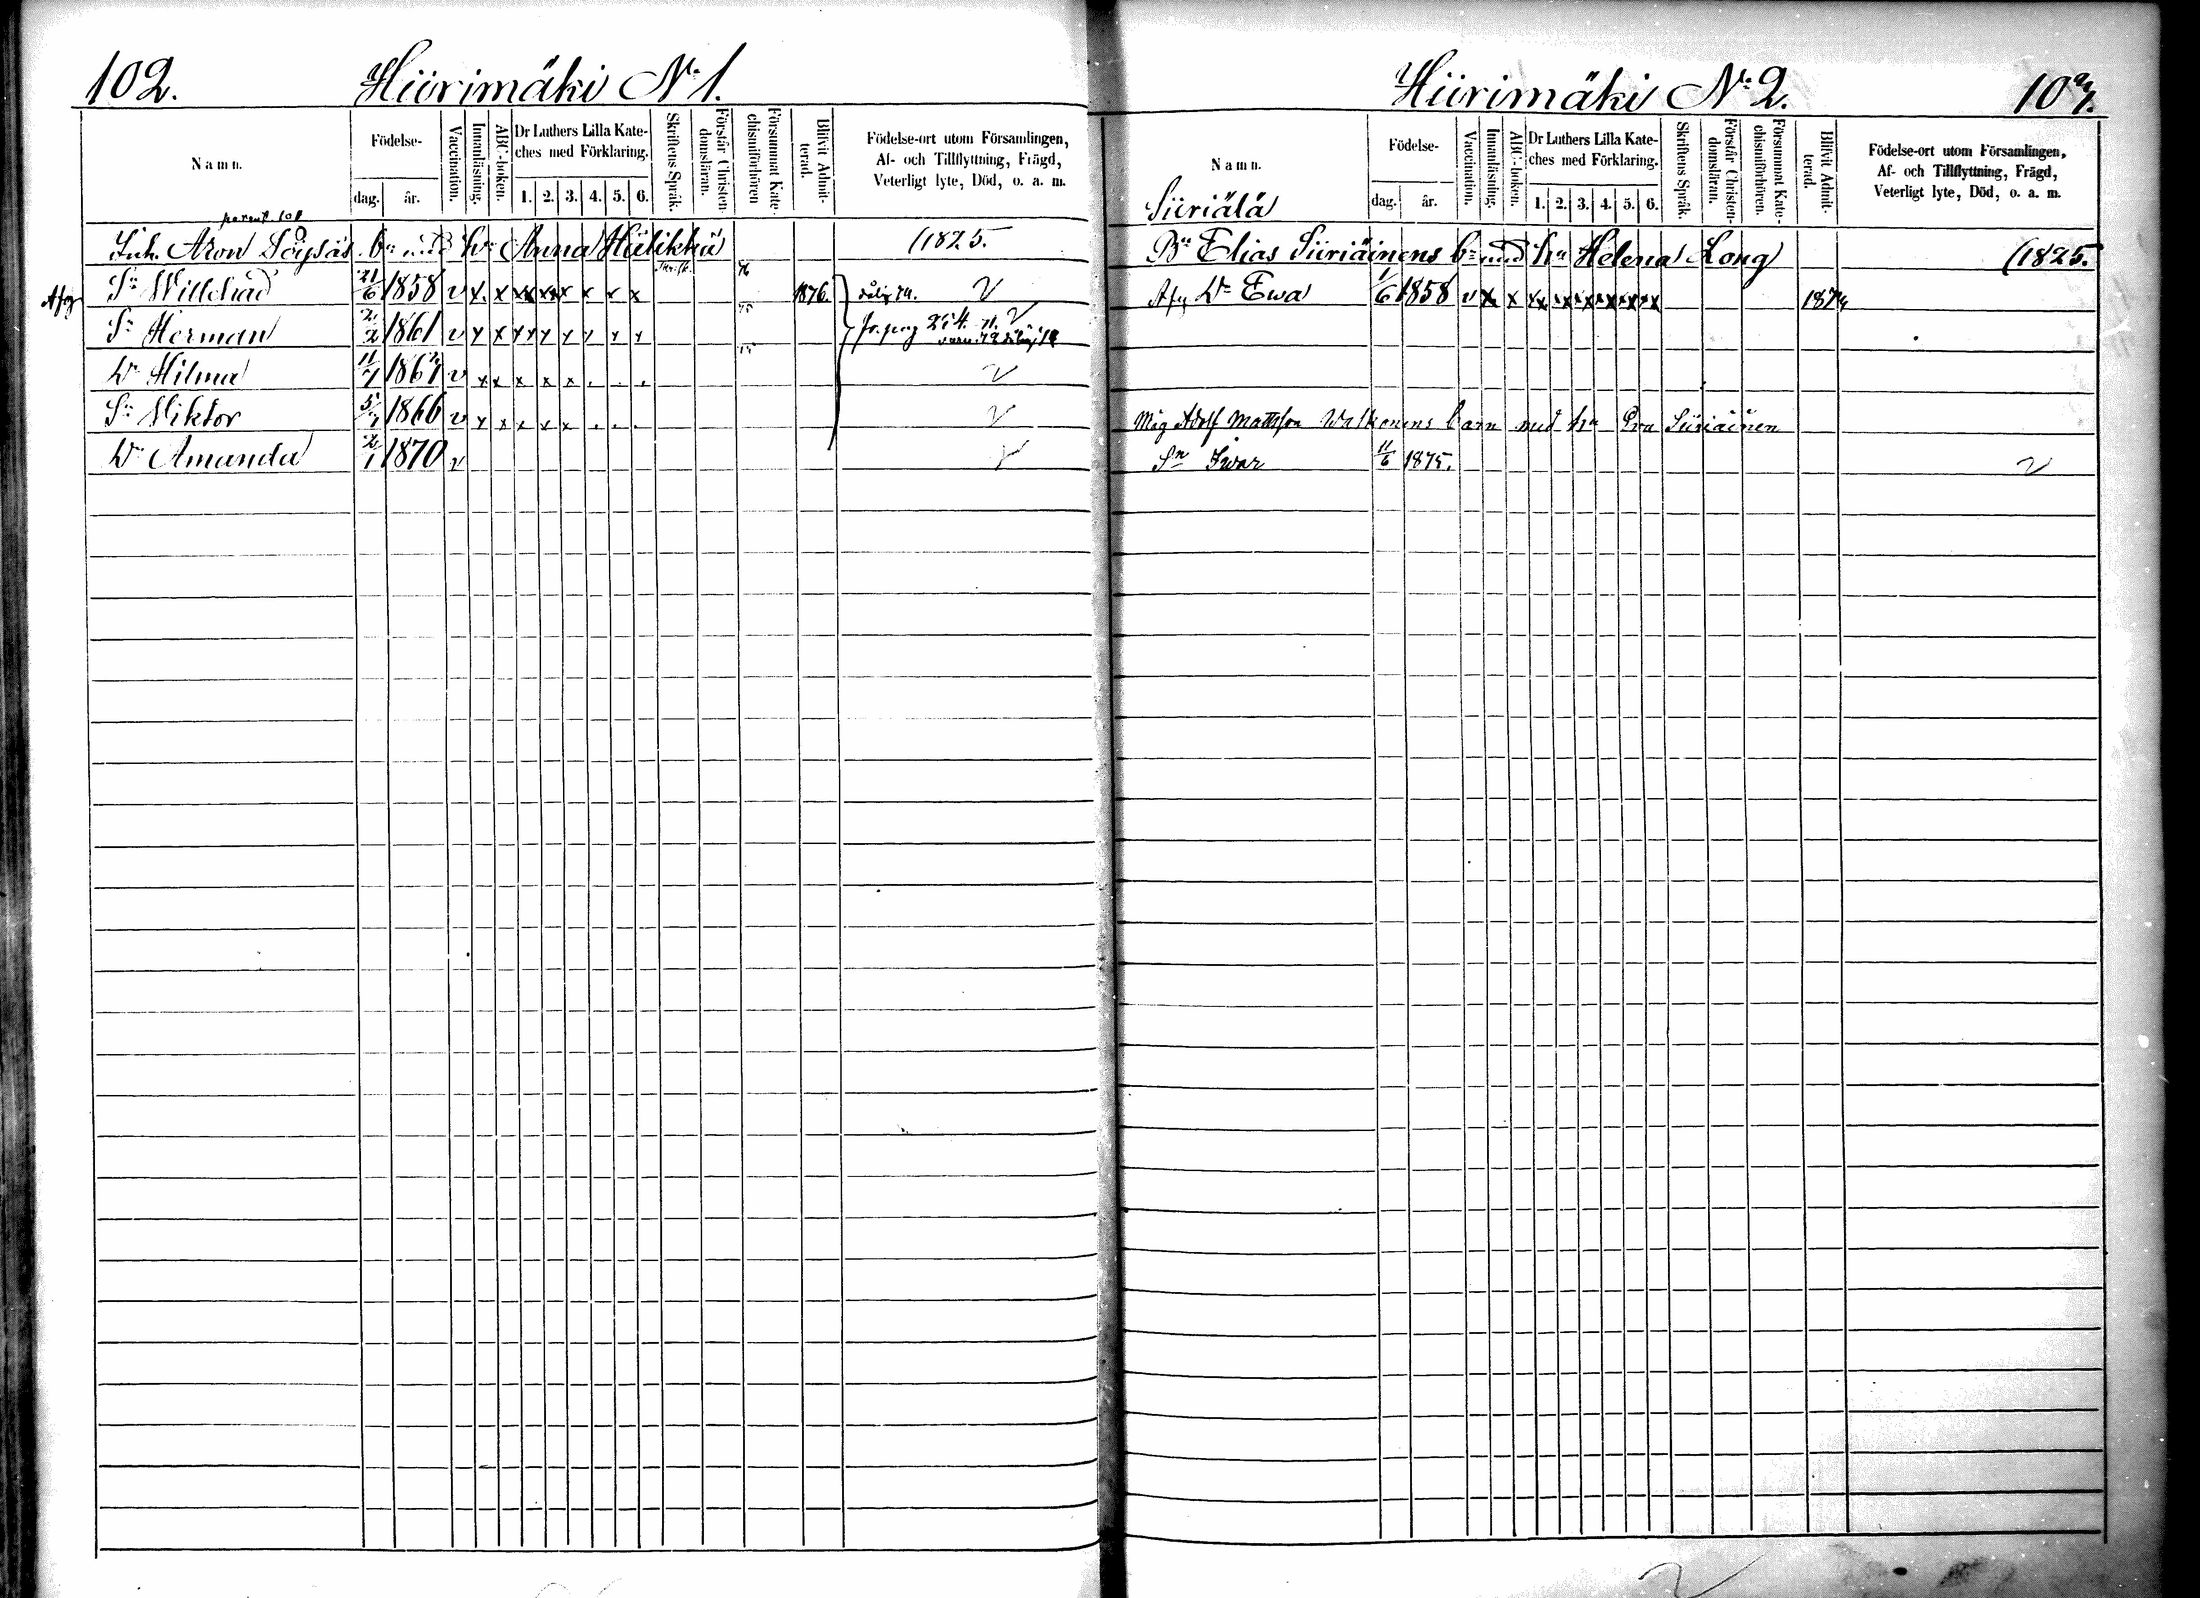 102. Hiirimäki N:o 1.
Namn. Födelse- dag. år. Vaccination. Innanläsning. ABC-boken. Dr Luthers Lilla Kateches med Förklaring. 1. 2. 3. 4. 5. 6. Skriftens Språk. Förstår Christendomsläran. Försummat Katechismiförhören Blifvit Admitterad. Födelse-ort utom Församlingen, Af- och Tillflyttning, Frägd, Veterligt lyte, Död, o. a. m.
Inh. Aron b:n med h:u Anna (1825.
Afg S:n Willehad 21/6 1858 v x x x x x x x x 76 1876.
S:n Herman 2/2 1861 v x x x x x x x x 75 fr. pag 254.
D:r Hilma 11/7 v x x x x x
S:n Wiktor 1866 v x x x x x
D:r Amanda 2/1 1870 v
Hiirimäki N:o 2.
Namn. Födelse- dag. år. Vaccination. Innanläsning. ABC-boken. Dr Luthers Lilla Kateches med Förklaring. 1. 2. 3. 4. 5. 6. Skriftens Språk. Förstår Christendomsläran. Försummat Katechismiförhören. Blifvit Admitterad. Födelse-ort utom Församlingen, Af- och Tillflyttning, Frägd, Veterligt lyte, Död, o. a. m.
Siiriälä
B:n Elias Siiriäinens b:n med h:u Helena Kong (1825.
Afg D:r Ewa 1/6 1858 v x x x x x x x x
Måg Adolf Mattsson barn med h:u Eva Siiriäinen
S:n Iwar 11/6 1875.